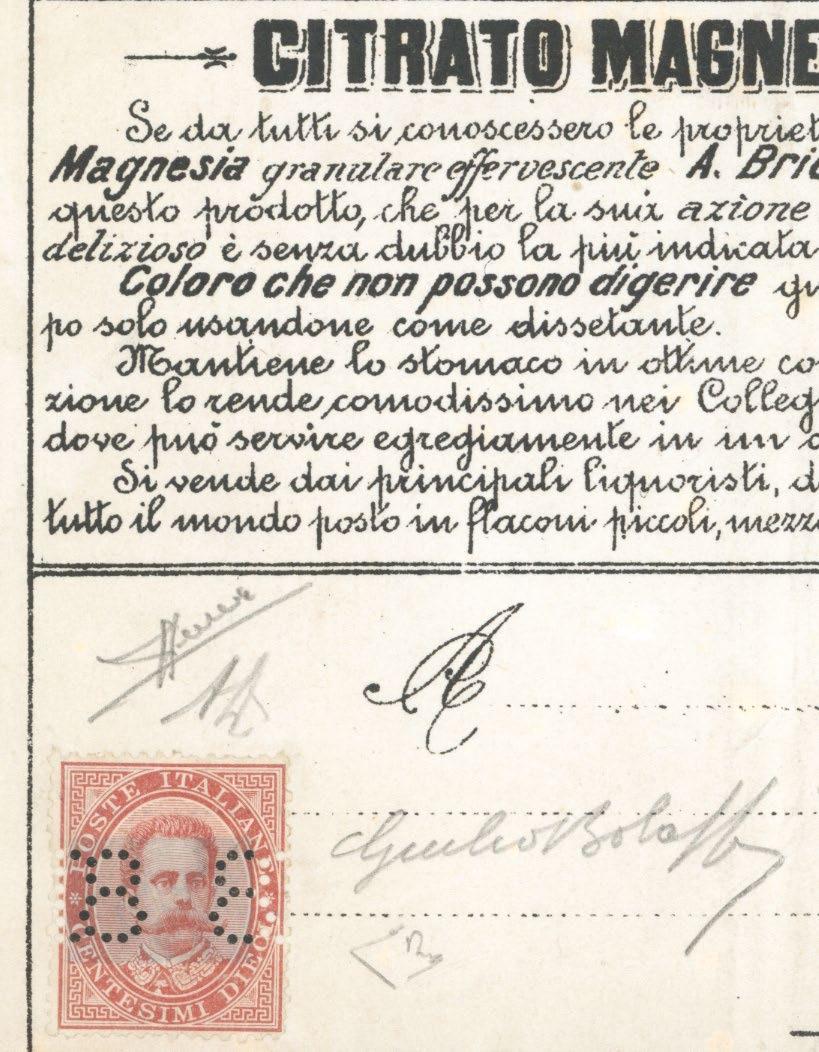 CITRATO MAGNE
Se da tutti si conoscessero le propriet
Magnesia granulare effervescente A. Bri
questo prodotto, che per la sua azione
delizioso è senza dubbio la più indicata
Coloro che non possono digerire gu
po solo usandone come dissetante.
Mantiene lo stomaco in ottime co
zione lo rende comodissimo nei Colleg
dove può servire egregiamente in un
Si vende dai principali liquoristi, d
tutto il mondo posto in flaconi piccoli, mezz
A
POSTE ITALIANE
Giulio Bolaffi
B
CENTESIMI DIECI